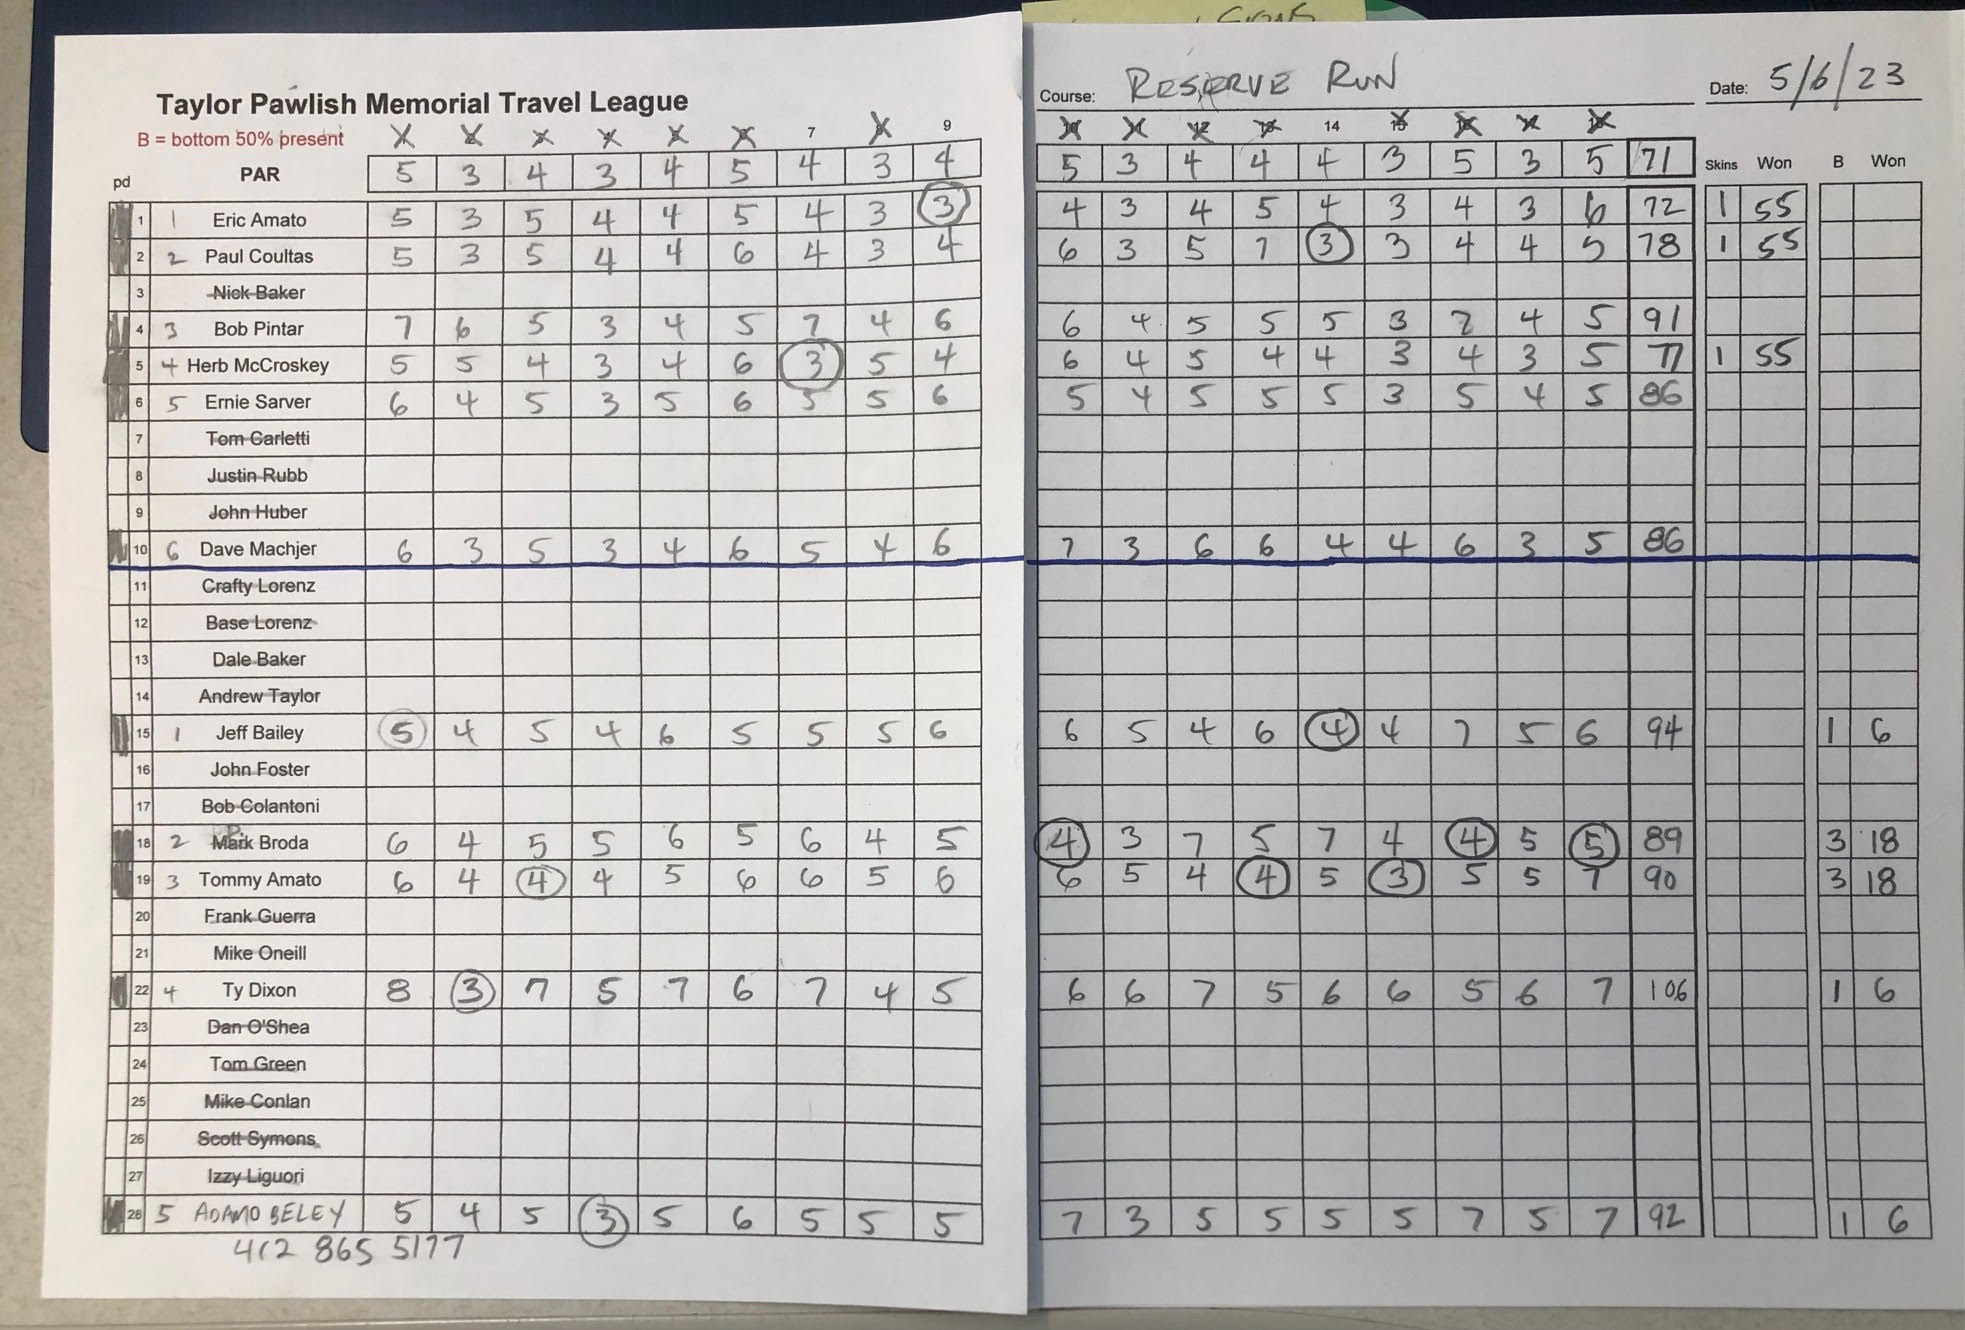 Taylor Pawlish Memorial Travel League
Course: RESERVE RUN Date: 5/6/23
B = bottom 50% present 1 2 3 4 5 6 7 8 9 10 11 12 13 14 15 16 17 18
pd PAR 5 3 4 3 4 5 4 3 4 5 3 4 4 4 3 5 3 5 71 Skins Won B Won
1 1 Eric Amato 5 3 5 4 4 5 4 3 3 4 3 4 5 4 3 4 3 6 72 1 55
2 2 Paul Coultas 5 3 5 4 4 6 4 3 4 6 3 5 7 3 3 4 4 5 78 1 55
3 Nick Baker
4 3 Bob Pintar 7 6 5 3 4 5 7 4 6 6 4 5 5 5 3 7 4 5 91
5 4 Herb McCroskey 5 5 4 3 4 6 3 5 4 6 4 5 4 4 3 4 3 5 77 1 55
6 5 Ernie Sarver 6 4 5 3 5 6 5 5 6 5 4 5 5 5 3 5 4 5 86
7 Tom Carletti
8 Justin Rubb
9 John Huber
10 6 Dave Machjer 6 3 5 3 4 6 5 4 6 7 3 6 6 4 4 6 3 5 86
11 Crafty Lorenz
12 Base Lorenz
13 Dale Baker
14 Andrew Taylor
15 1 Jeff Bailey 5 4 5 4 6 5 5 5 6 6 5 4 6 4 4 7 5 6 94 1 6
16 John Foster
17 Bob Colantoni
18 2 Mark Broda 6 4 5 5 6 5 6 4 5 4 3 7 5 7 4 4 5 5 89 3 18
19 3 Tommy Amato 6 4 4 4 5 6 6 5 6 6 5 4 4 5 3 5 5 7 90 3 18
20 Frank Guerra
21 Mike Oneill
22 4 Ty Dixon 8 3 7 5 7 6 7 4 5 6 6 7 5 6 6 5 6 7 106 1 6
23 Dan O'Shea
24 Tom Green
25 Mike Conlan
26 Scott Symons
27 Izzy Liguori
28 5 ADAMO BELEY 5 4 5 3 5 6 5 5 5 7 3 5 5 5 5 7 5 7 92 1 6
412 865 5177